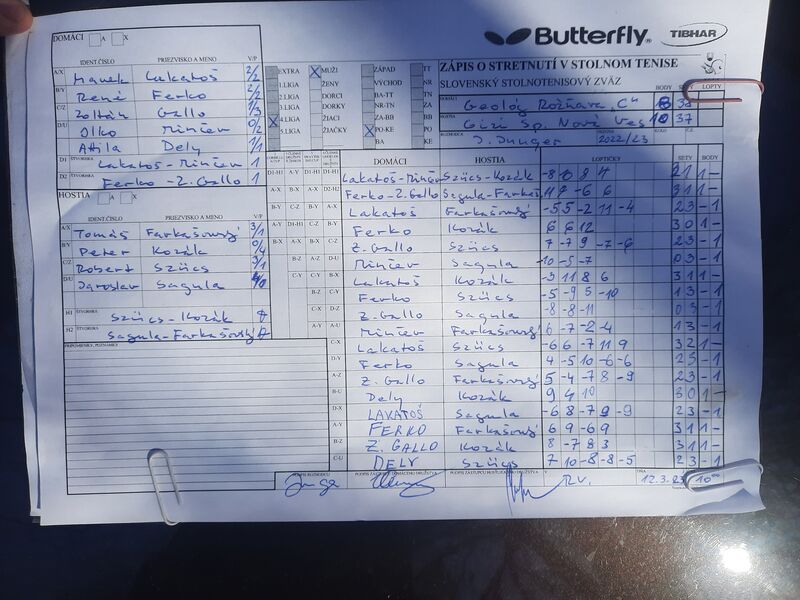 Butterfly TIBHAR
ZÁPIS O STRETNUTÍ V STOLNOM TENISE
SLOVENSKÝ STOLNOTENISOVÝ ZVÄZ
DOMÁCI A X
IDENT.ČÍSLO PRIEZVISKO A MENO V/P
A/X Marek Lakatoš 2/2
B/Y René Ferko 2/2
C/Z Zoltán Gallo 1/3
D/U Olko Minčev 0/2
Attila Dely 1/1
D1 ŠTVORHRA Lakatoš - Minčev 1
D2 ŠTVORHRA Ferko - Z. Gallo 1
HOSTIA A X
IDENT.ČÍSLO PRIEZVISKO A MENO V/P
A/X Tomáš Farkašovský 3/1
B/Y Peter Kozák 0/4
C/Z Robert Szücs 3/1
D/U Jaroslav Sagula
H1 ŠTVORHRA Szücs - Kozák
H2 ŠTVORHRA Sagula - Farkašovský
PRIPOMIENKY, POZNÁMKY
EXTRA X MUŽI ZÁPAD TT
1.LIGA ŽENY VÝCHOD NR
2.LIGA DORCI BA-TT TN
3.LIGA DORKY NR-TN ZA
X 4.LIGA ŽIACI ZA-BB BB
5.LIGA ŽIAČKY X PO-KE PO
BA KE
BODY SETY LOPTY
DOMÁCI Geológ Rožňava "C" 8
HOSTIA Spš. Nová Ves 10 37
ROZHODCA J. Dunger 2022/23
DOMÁCI HOSTIA LOPTIČKY SETY BODY
Lakatoš - Minčev Szücs - Kozák
Ferko - Z. Gallo Sagula - Farkaš. 11 7 -6 6 3 1 1 -
Lakatoš Farkašovský -5 5 -2 11 -4 2 3 - 1
Ferko Kozák 6 6 12 3 0 1 -
Z. Gallo Szücs 7 -7 9 -7 -6 2 3 - 1
Minčev Sagula -10 -5 -7 0 3 - 1
Lakatoš Kozák -3 11 8 6 3 1 1 -
Ferko Szücs -5 -9 5 -10 1 3 - 1
Z. Gallo Sagula -8 -8 -11 0 3 - 1
Minčev Farkašovský 6 -7 -2 -4 1 3 - 1
Lakatoš Szücs -6 6 -7 11 9 3 2 1 -
Ferko Sagula 4 -5 10 -6 -6 2 3 - 1
Z. Gallo Farkašovský 5 -4 -7 8 -9 2 3 - 1
Dely Kozák 9 4 10 3 0 1 -
LAKATOŠ Sagula -6 8 -7 9 -9 2 3 - 1
FERKO Farkašovský 6 9 -6 9 3 1 1 -
Z. GALLO Kozák 8 -7 8 3 3 1 1 -
DELY Szücs 7 10 -8 -8 -5 2 3 - 1
PODPIS ROZHODCU PODPIS ZÁSTUPCU DOMÁCEHO DRUŽSTVA PODPIS ZÁSTUPCU HOSŤUJÚCEHO DRUŽSTVA V R.V. DŇA 12.3.23 10